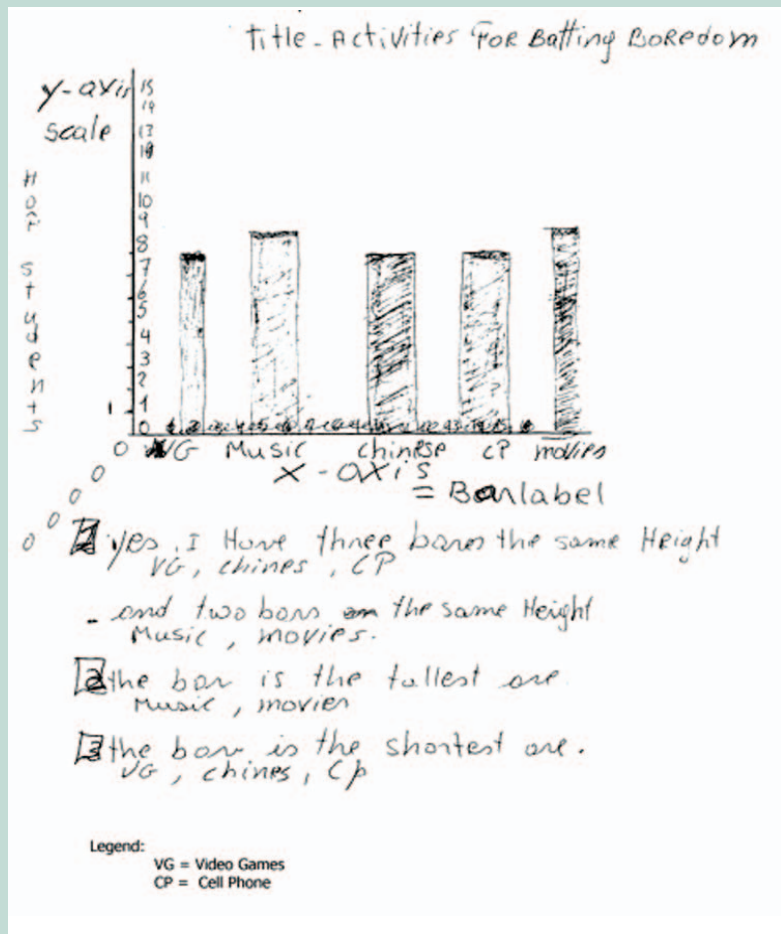 Title - Activities FOR Batting BOREDOM
y-axis
scale
# of students
15
14
13
11
10
9
8
7
6
5
4
3
2
1
0
1
0 VG Music chinese CP movies
x - axis
= Barlabel
1 yes, I Have three bares the same Height
VG, chines, CP
- and two bars the same Height
Music, movies.
2 the bar is the tallest are
Music, movies
3 the bar is the shortest are.
VG, chines, Cp
Legend:
VG = Video Games
CP = Cell Phone